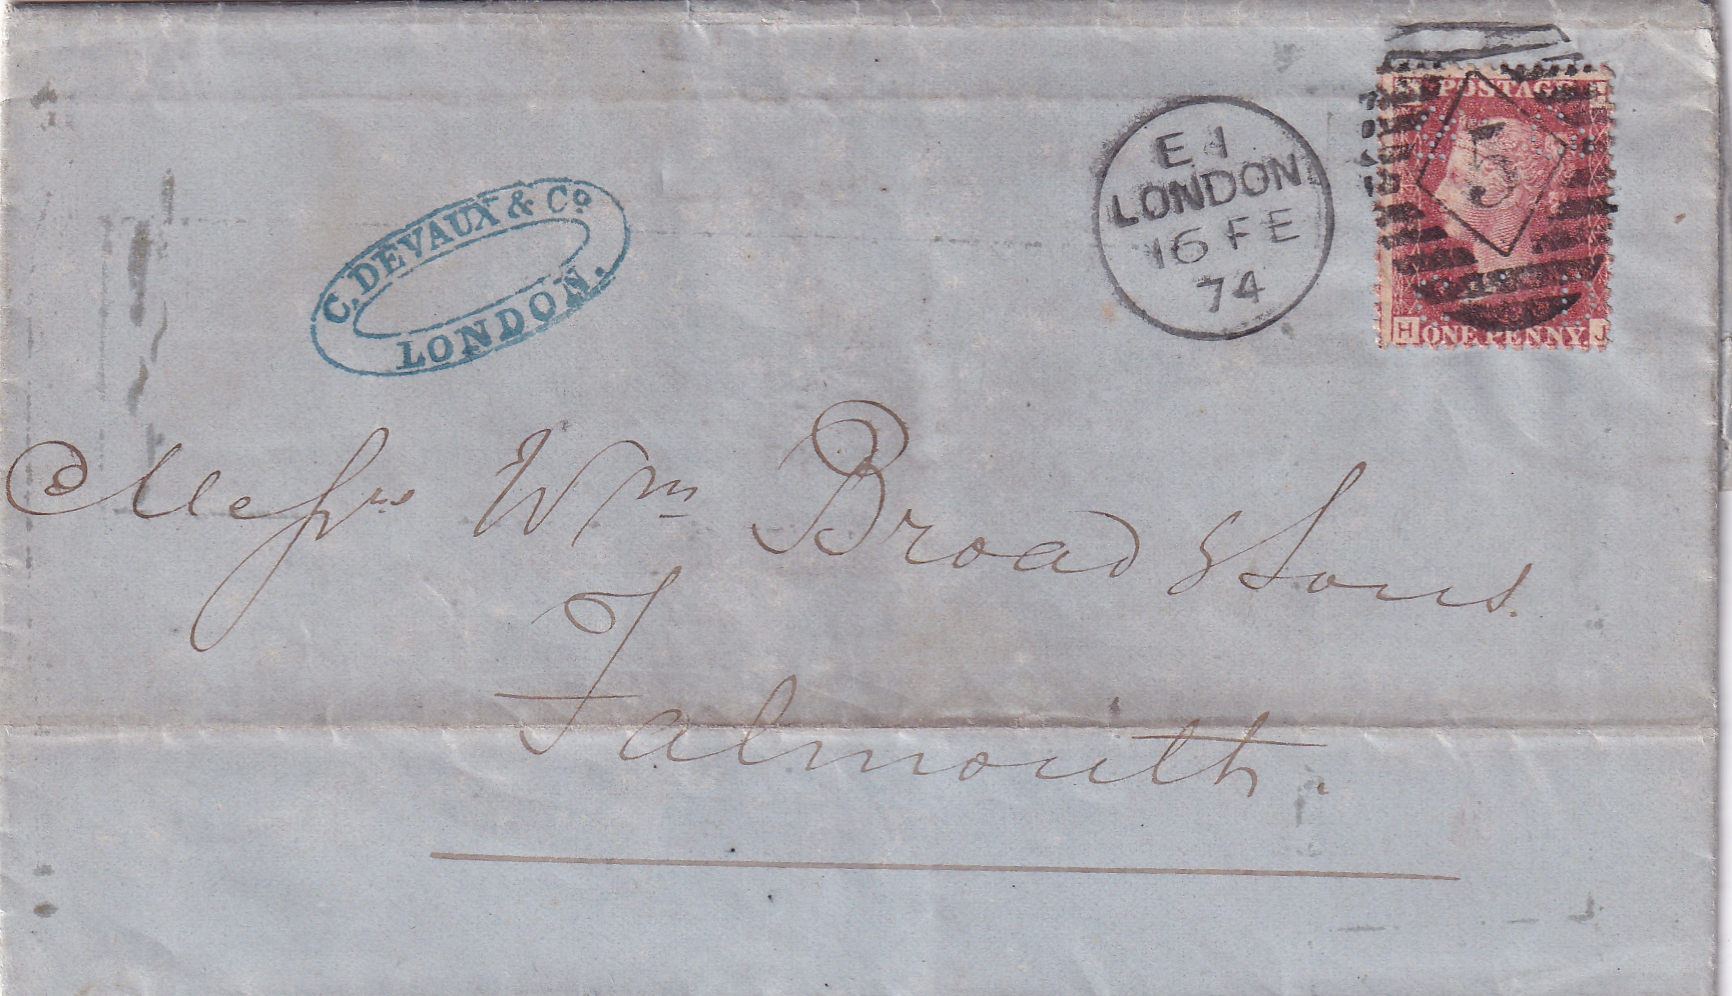 C. DEVAUX & Co
LONDON.
E 1
LONDON
16 FE
74
POSTAGE
5
H ONE PENNY J
Messrs Wm Broad & Sons.
Falmouth.